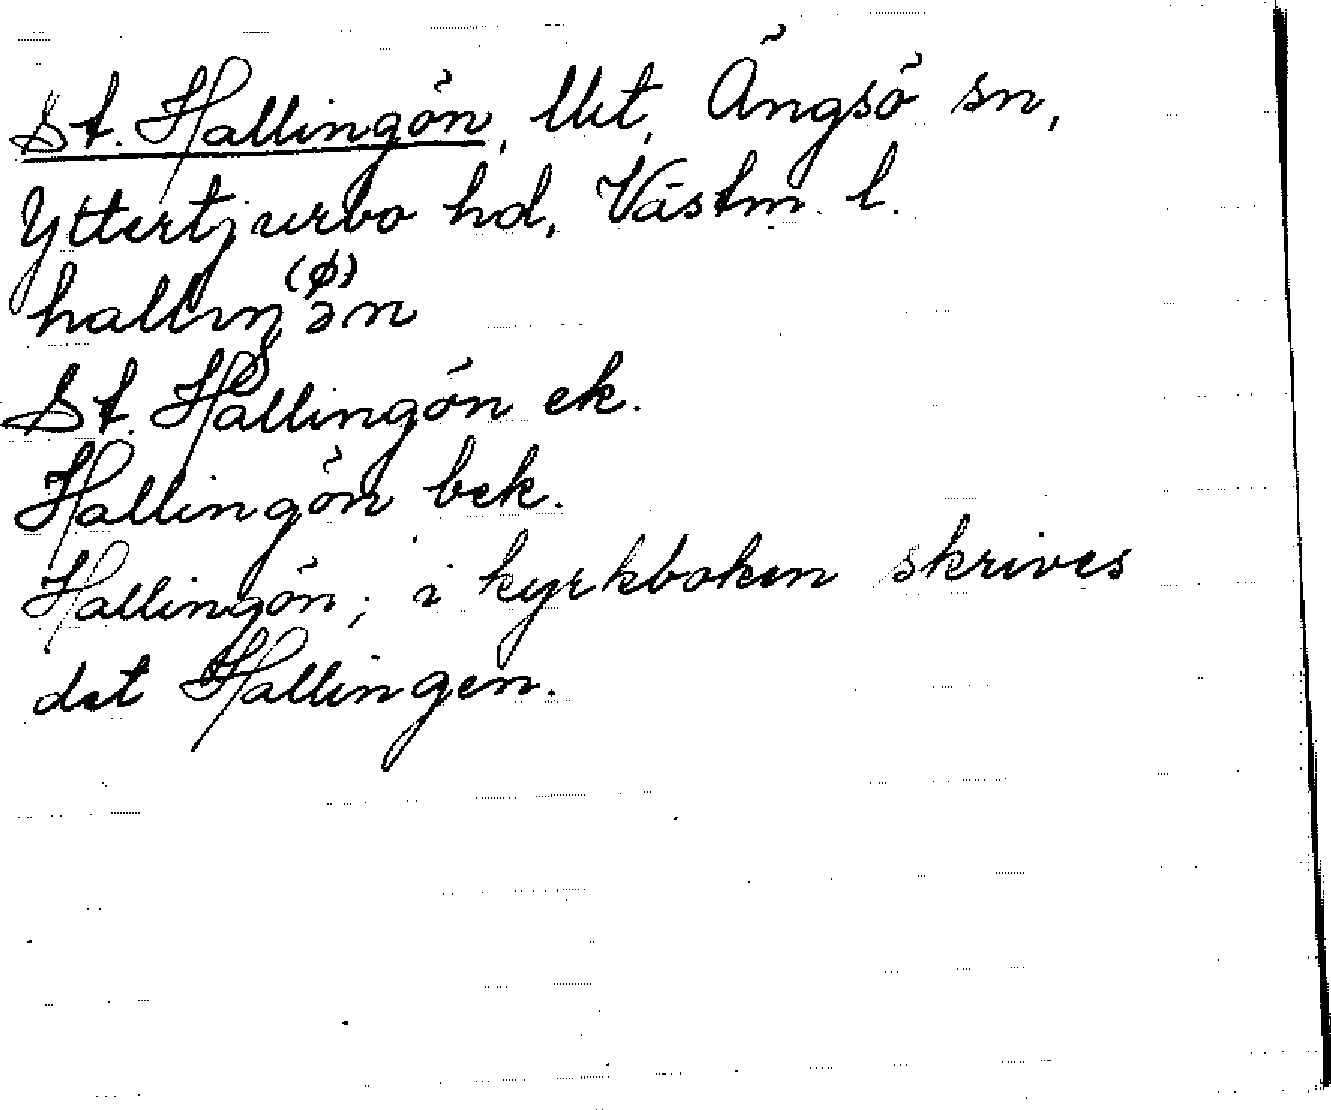 St. Hallingön, llit, Ängsö sn,
Yttertjurbo hd, Västm. l.
hallıŋ(ø)ən
St. Hallingön ek.
Hallingön bek.
Hallingön; i kyrkboken skrives
det Hallingen.